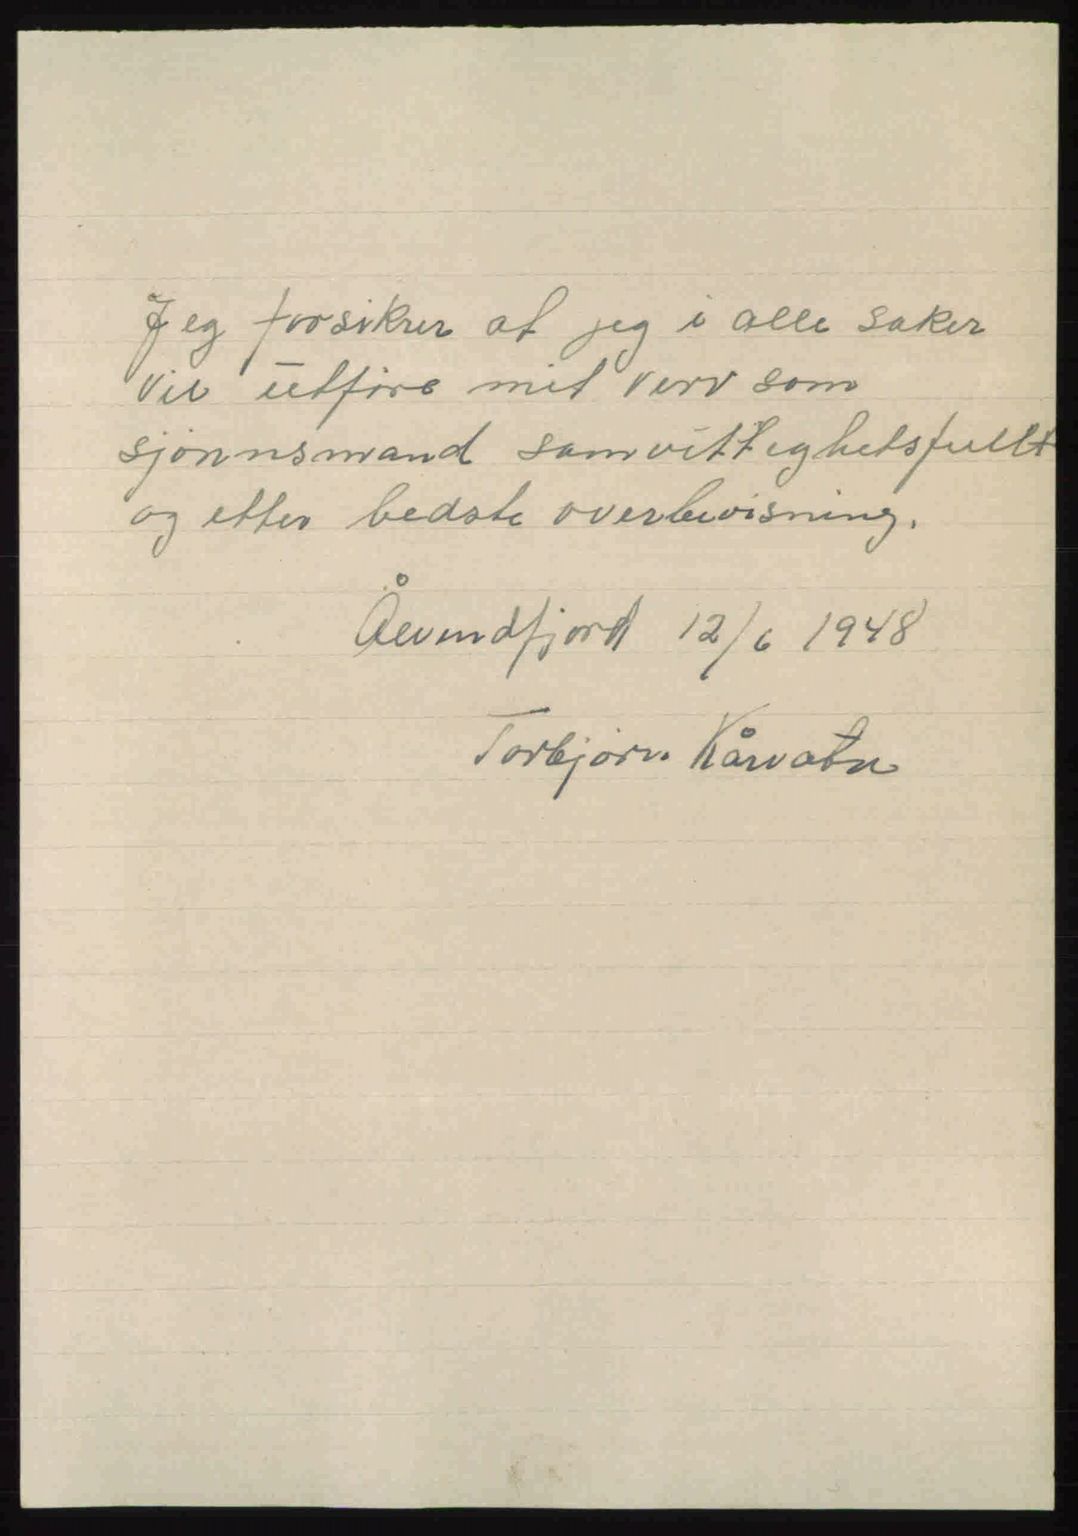 Jeg forsikrer at jeg i alle saker
vil utføre mit verv som
sjønnsmand samvittighetsfullt
og etter bedste overbevisning.
Ålvundfjord 12/6 1948
Torbjørn Kårvatn